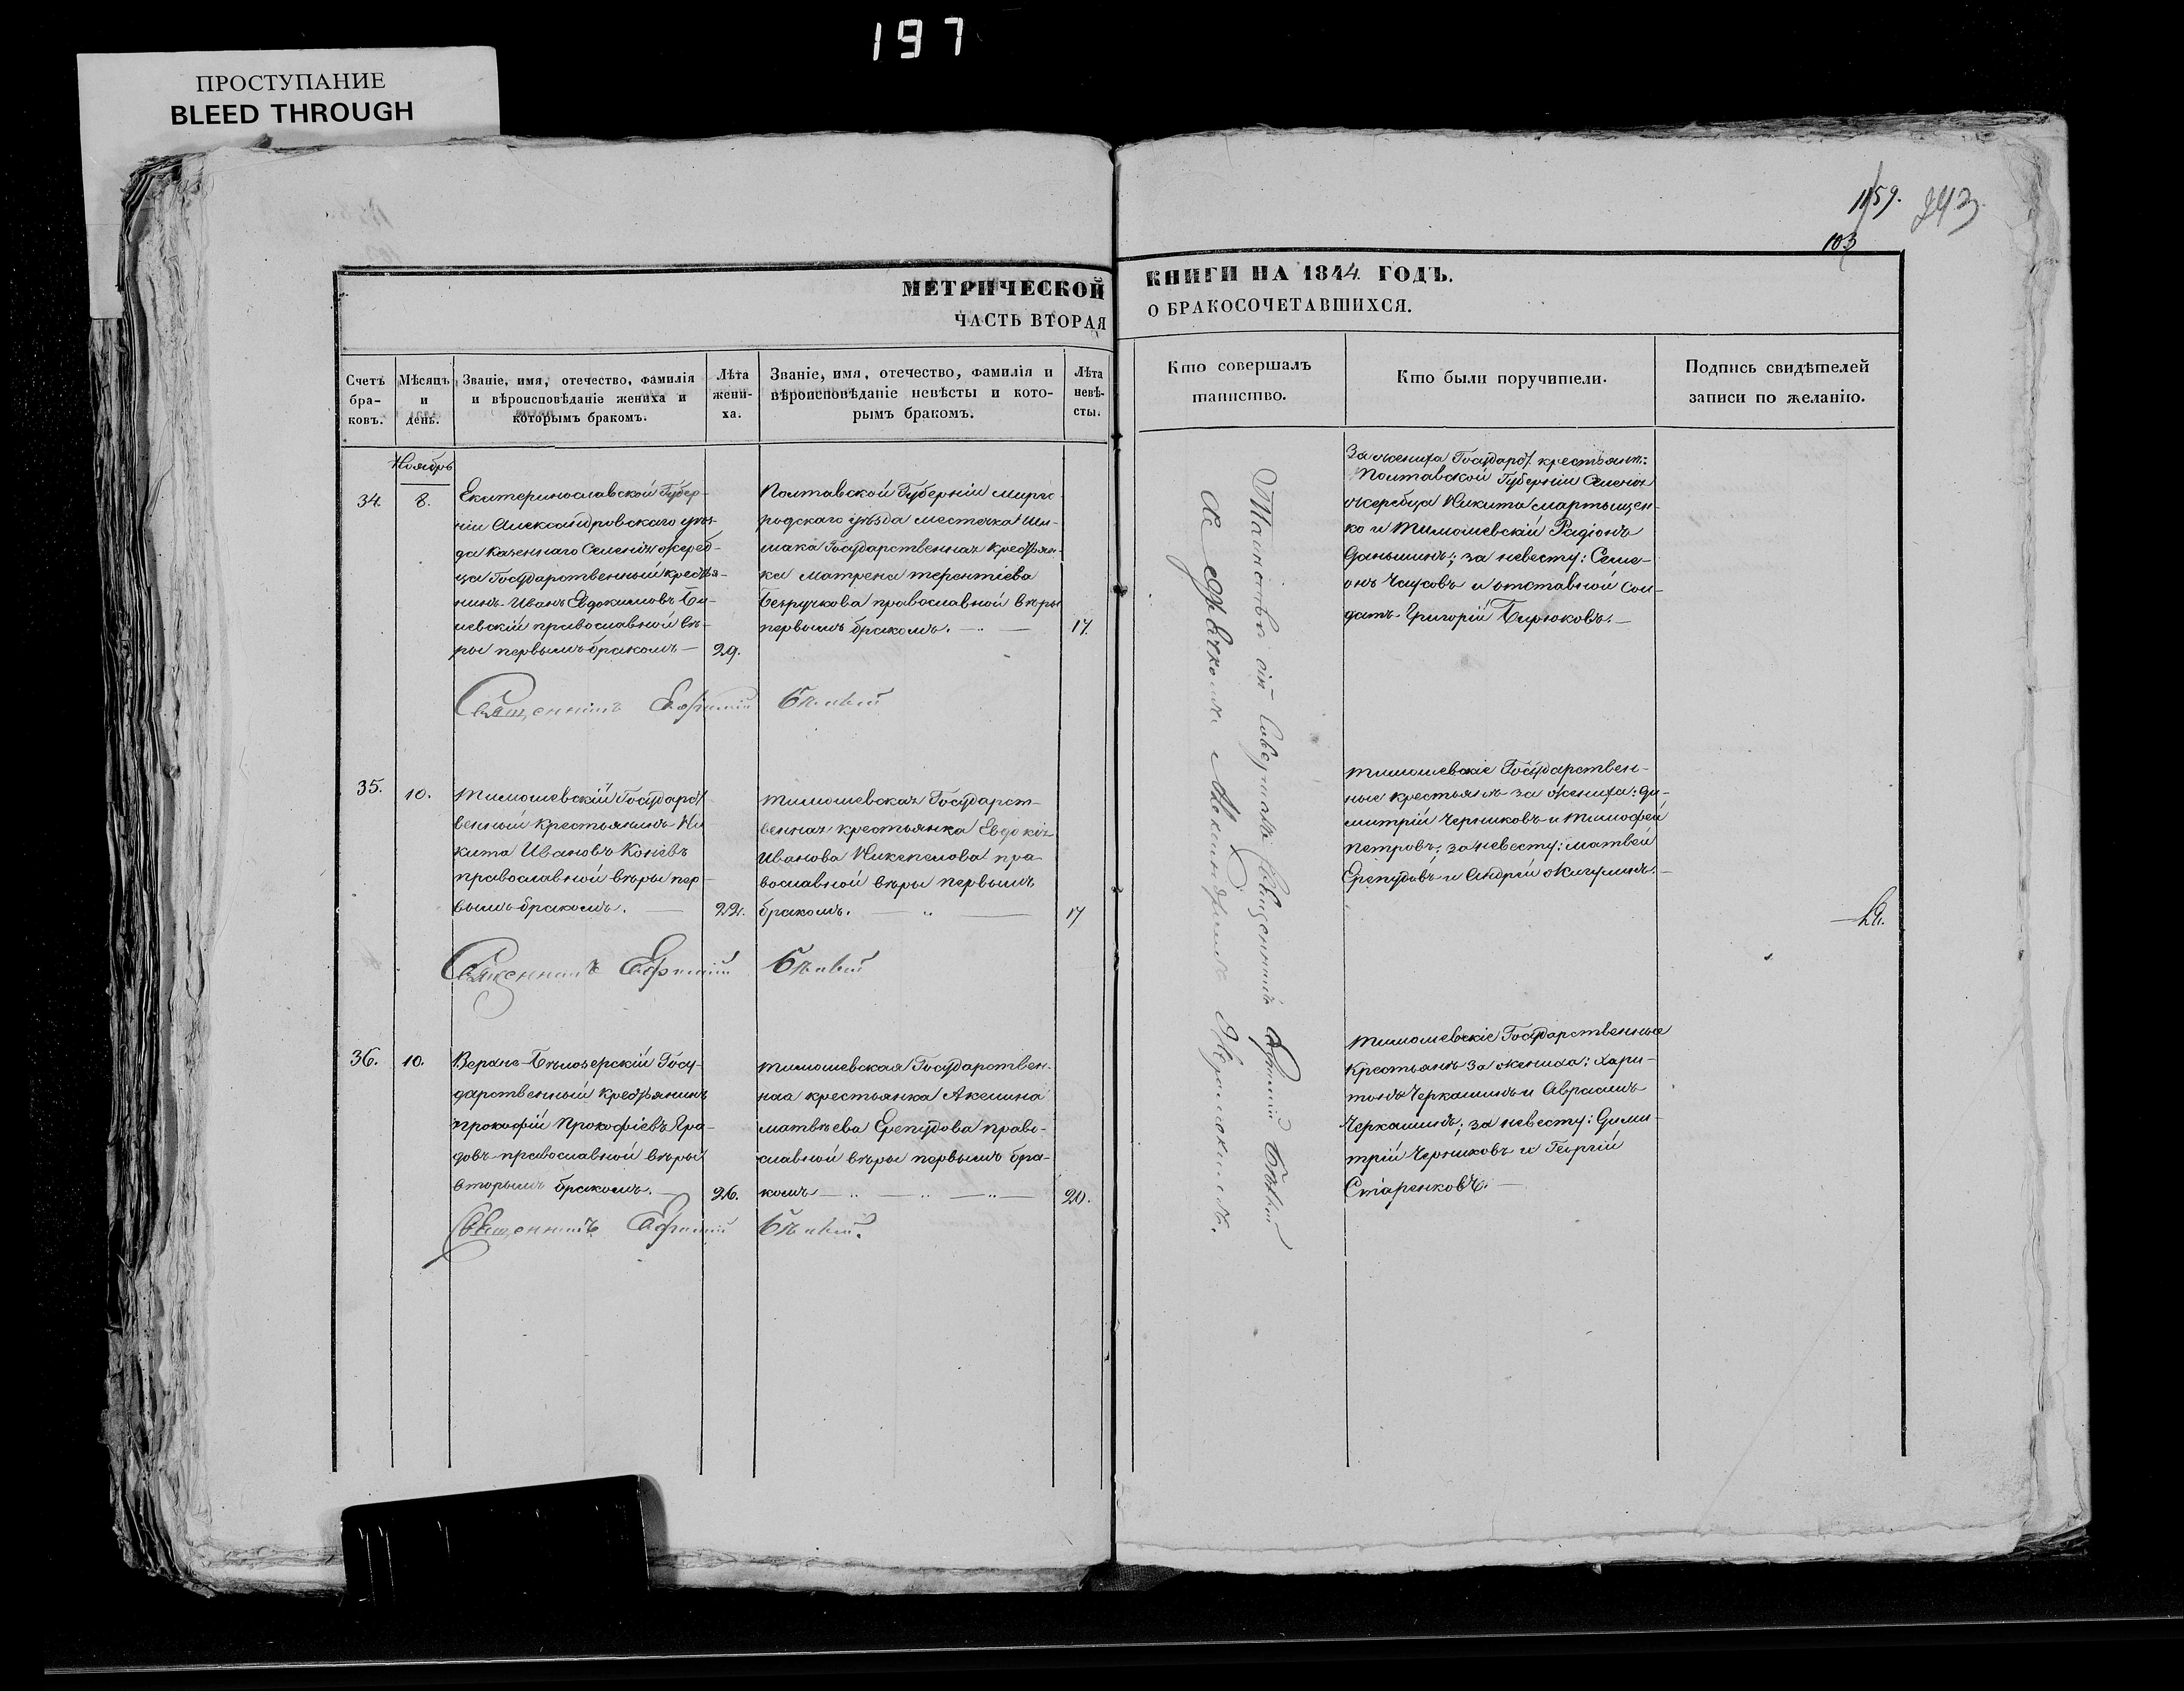 197
ПРОСТУПАНИЕ
BLEED THROUGH
1159. 243
103
МЕТРИЧЕСКОЙ
ЧАСТЬ ВТОРАЯ
КНИГИ НА 1844. ГОДЪ.
О БРАКОСОЧЕТАВШИХСЯ.
Счетъ
бра-
ковъ.
Мѣсяцъ
и
день.
Званіе, имя, отечество, фамилія
и вѣроисповѣданіе жениха и
которымъ бракомъ.
Лѣта
жени-
ха.
Званіе, имя, отечество, фамилія и
вѣроисповѣданіе невѣсты и кото-
рымъ бракомъ.
Лѣта
невѣ-
сты.
Кто совершалъ
таинство.
Кто были поручители.
Подпись свидѣтелей
записи по желанію.
Ноябрь
34.
8.
Екатеринославской Губер-
ніи Александровскаго уѣз-
да Казеннаго Селенія жереб-
ца Государственный крестья-
нинъ Иванъ Евдокимовъ
православной вѣ-
ры первымъ бракомъ —
29.
Полтавской Губерніи мирго
родскаго уѣзда местечка Ши-
шака Государственная крестьян-
ка матрена терентіева
Безручкова православной вѣры
первымъ бракомъ. —
17.
Священникъ Ефимій
За жениха Государст. крестьян:
Полтавской Губерніи Селенія
жеребца Никита мартыщен-
ко и Тимошевскій Радіонъ
Даньшинъ; за невесту: Семе-
онъ Чаусовъ и отставной Сол-
датъ Григорій Бирюковъ. —
35.
10.
Тимошевскій Государст
венный крестьянинъ Ни
кита Ивановъ Коневъ
православной вѣры пер
вымъ бракомъ. —
22.
тимошевская Государст-
венная крестьянка Евдокія
Иванова пра
вославной вѣры первымъ
бракомъ. —
17
Священникъ Ефимій
тимошевскіе Государствен-
ные крестьянъ за жениха: Ди-
митрій Черниковъ и Тимофей
петровъ; за невесту: матвей
Ерепудовъ и Андрей Жигулинъ. —
36.
10.
Верхне-Бѣлозерскій Госу-
дарственный крестьянинъ
прокофій Прокофіевъ
православной вѣры
вторымъ бракомъ. —
26.
тимошевская Государствен-
наа крестьянка Акелина
матвѣева Ерепудова право-
славной вѣры первымъ бра-
комъ —
20.
Священникъ Ефимій
тимошевскіе Государственные
крестьянъ за жениха: Хари-
тонъ Черкашинъ и Авраамъ
Черкашинъ; за невесту: Дими-
трій Черниковъ и Георгій
Старенковъ. —
Таинство сіи совершалъ Священникъ Ефимій